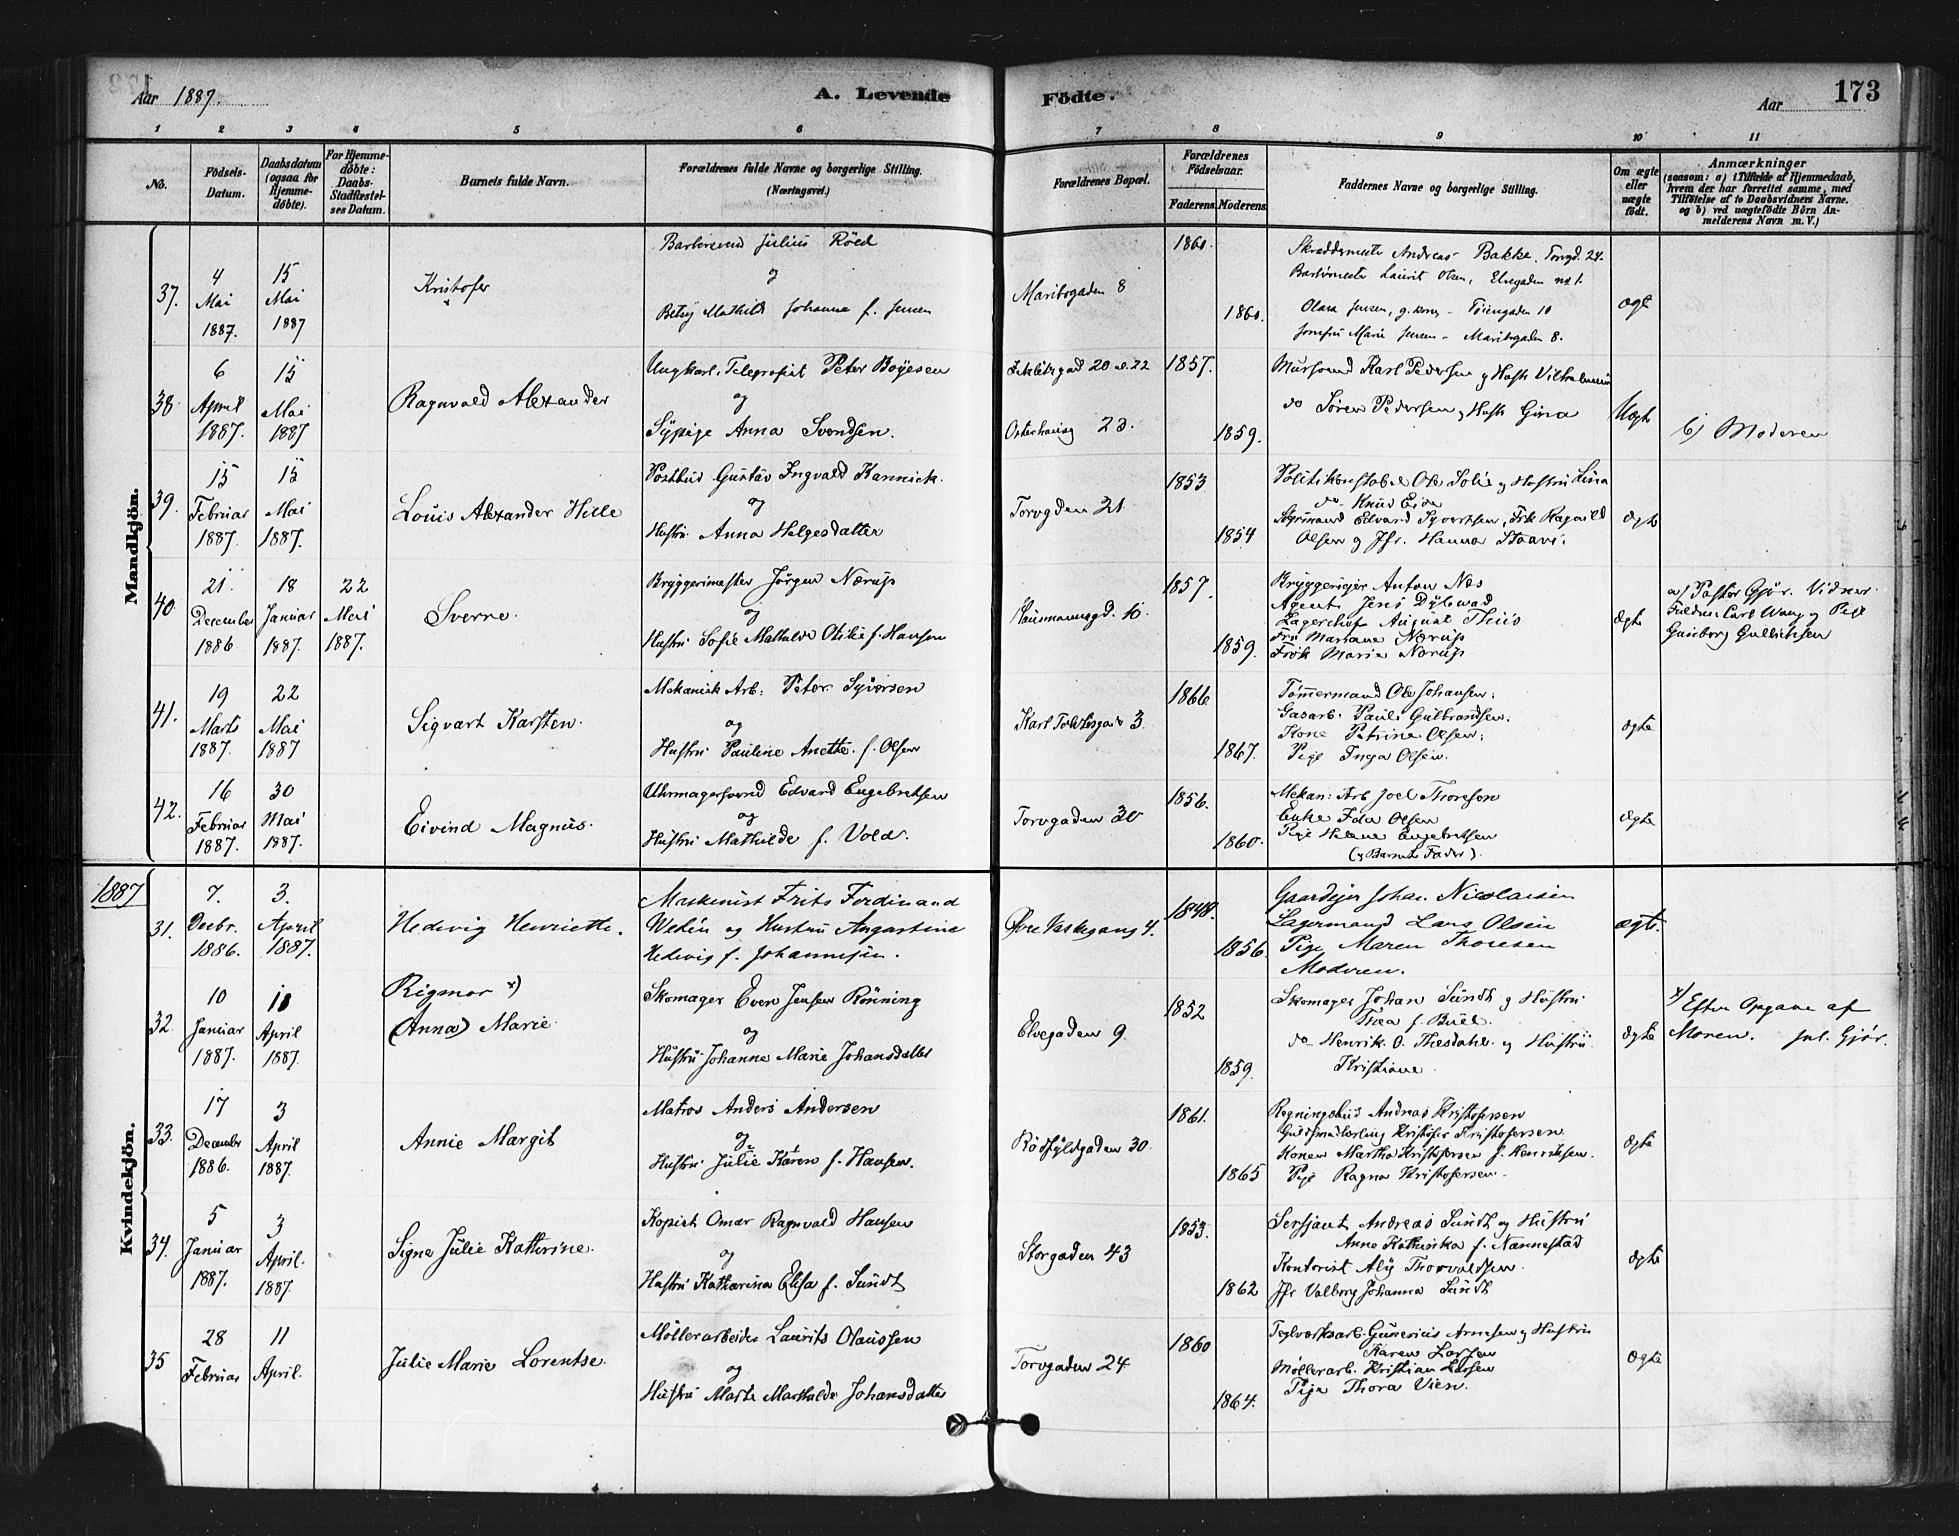 Aar 1887.
A. Levende
Födte.
Aar
173
1 2 3 4 5 6 7 8 9 10 11
No.
Födsels-Datum.
Daabsdatum (ogsaa for Hjemme-døbte).
For Hjemme-døbte: Daabs-Stadfæstel-ses Datum.
Barnets fulde Navn.
Forældrenes fulde Navne og borgerlige Stilling.
(Næringsvei.)
Forældrenes Bopæl.
Forældrenes Födselsaar.
Faderens. Moderens.
Faddernes Navne og borgerlige Stilling.
Om ægte eller uægte født.
Anmærkninger
(saasom: a) i Tilfælde af Hjemmedaab,
hvem der har forrettet samme, med
Tilføielse af to Daabsvidners Navne.
og b) ved uægtefödte Börn An-
melderens Navn m. V.)
Mandkjön.
37.
4 Mai 1887.
15 Mai 1887
Kristofer
Barbersvend Julius Röed
og
Betsy Mathilde Johanne f. Jensen
Maribogaden 8
1860.
1860.
Skræddermester Andreas Bakke, Torvgd. 24.
Barbermester Laurit Olsen, Elvegaden No 1.
Olava Jensen, g. kone - Töiengaden 10
Jomfru Marie Jensen - Maribogaden 8.
ægt
38.
6 April 1887.
15 Mai 1887
Ragnvald Alexander
Ungkarl, Telegrafist Peter Boyesen
og
Sypige Anna Svendsen.
20 o. 22
Osterhausg 23.
1857.
1859.
Mursvend Karl Pedersen og Hust. Vilhelmine
do Sören Pedersen og Hust Gina
Uægt
b) Moderen
39.
15 Februar 1887.
15 Mai 1887.
Louis Alexander Hille
Postbud Gustav Ingvald Kannick.
og
Hustru Anna Helgesdatter
Torvgden 21
1853
1854
Politikonstabel Ole Solie og Hustru Lina
do Knud Eide
Styrmand Edvard Syvertsen, Frk Ragnild
Olsen og Jfr. Hanna
ægte
40.
21. December 1886.
18 Januar 1887.
22 Mai 1887.
Sverre.
Bryggerimester Jörgen Nærup
og
Hustru Sofie Mathilde Otilie f. Hansen
10.
1857.
1859.
Bryggerieier Anton Næs
Agent Jens Dybwad
Lagerchef August Thiis
Fru Mariane Nærup
Frök Maria Nærup.
ægte
a/ Pastor Gjör. Vidner
Carl Wang og Pige
Gunborg Gullichsen
41.
19 Marts 1887.
22 Mai 1887
Sigvart Karsten.
Mekanisk Arb: Peter Syversen
og
Hustru Pauline Anette f. Olsen
3.
1866
1867.
Tömmermand Ole Johansen.
Gasarb. Paul Gulbrandsen.
Kone Petrine Olsen.
Pige Inga Olsen.
ægte
42.
16 Februar 1887.
30 Mai 1887.
Eivind Magnus.
Uhrmagersvend Edvard Engebretsen
og
Hustru Mathilde f. Vold.
Torvgaden 30
1856.
1860.
Mekan: Arb Joel Thoresen
Enke Ida Olsen
Pige Helene Engebretsen
(og Barnets Fader).
ægte
1887
Kvindekjön.
31.
7. Decbr. 1886.
3. April 1887.
Hedevig Henriette.
Maskinist Frits Ferdinand
Wedén og Hustru Augustine
Hedevig f. Johannesen.
Övre Vaskegang 4.
1848.
1856.
Gaardejer Johan Nicolaisen
Lagermand Lars Olsen
Pige Maren Thoresen
Moderen.
ægte.
32.
10 Januar 1887.
11 April 1887.
Rigmor x)
(Anna) Marie
Skomager Even Jensen Rönning
og
Hustru Johanne Marie Johansdatter
Elvegaden 9.
1852
1859.
Skomager Johan Sundt og Hustru
Thea f. Buel.
do Henrik O. Thesdahl og Hustru
Kristiane
ægte
x/ Efter Opgave af
Moren. Jul. Gjör.
33.
17 December 1886.
3 April 1887.
Annie Margit
Matros Anders Andersen
og
Hustru Julie Karen f. Hansen.
Rödfyldgaden 30.
1861.
1865
Regningsbud Andreas Kristofersen
Guldsmedlærling Kristofer Kristofersen
Konen Martha Kristofersen f. Henriksen.
Pige Ragna Kristofersen.
ægte
34.
5 Januar 1887.
3 April. 1887.
Signe Julie Kathrine.
Kopist Omar Ragnvald Hansen
og
Hustru Katharina Elisa f. Sundt
Storgaden 43
1853.
1862
Sersjant Andreas Sundt og Hustru
Anne Kathinka f. Nannestad
Kontorist Aly Thorvaldsen
Jfr Valborg Johanna Sundt
ægte
35
28 Februar
11 April.
Julie Marie Lorentse.
Möllerarbeider Laurits Olaussen
og
Hustru Marte Mathilde Johansdatter
Torvgaden 24
1860
1864.
Teglværksarb. Gunerius Arnesen og Hustru
Karen Larsen
Möllerarb. Kristian Larsen
Pige Thora Vien.
ægte